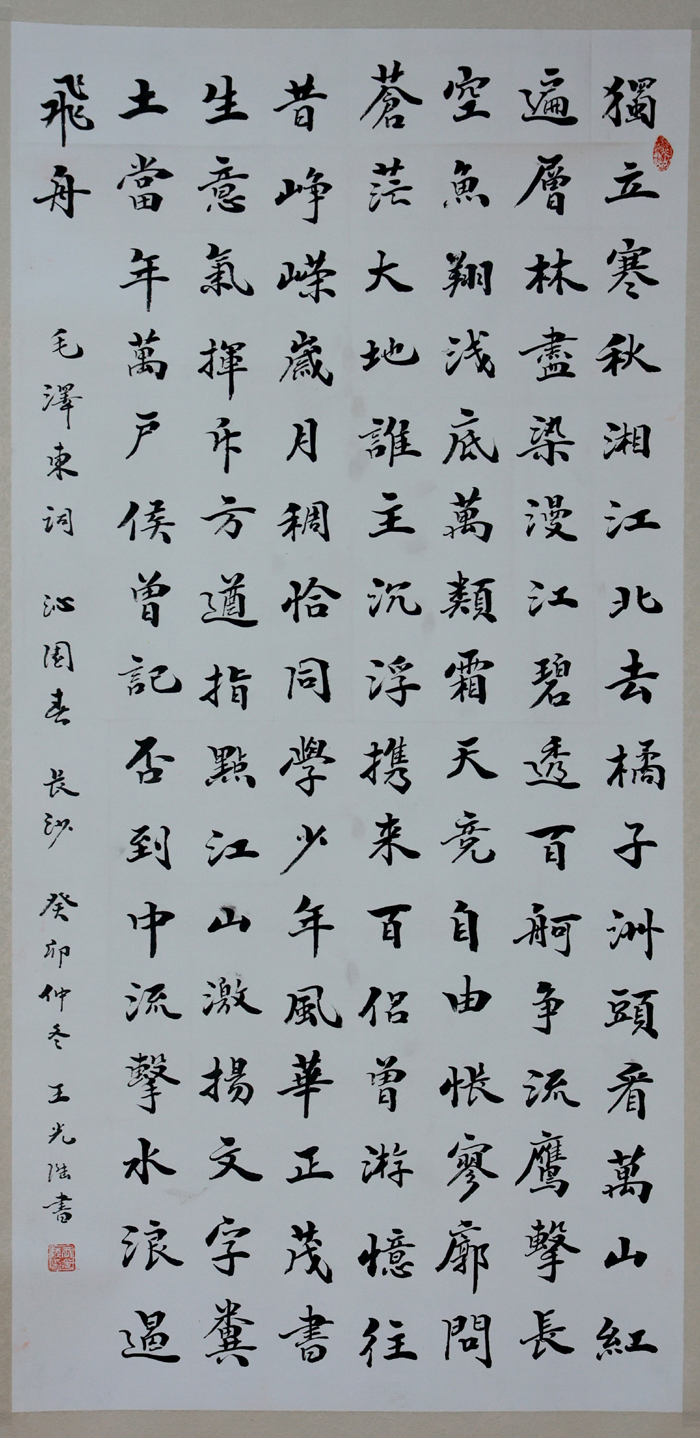 獨立寒秋湘江北去橘子洲頭看萬山紅
遍層林盡染漫江碧透百舸争流鷹擊長
空魚翔浅底萬類霜天竞自由悵寥廓問
蒼茫大地誰主沉浮携来百侣曾游憶往
昔峥嵘歲月稠恰同學少年風華正茂書
生意氣揮斥方遒指點江山激揚文字糞
土當年萬户侯曾記否到中流擊水浪遏
飛舟
毛澤東词 沁園春 長沙 癸卯仲冬 王光書